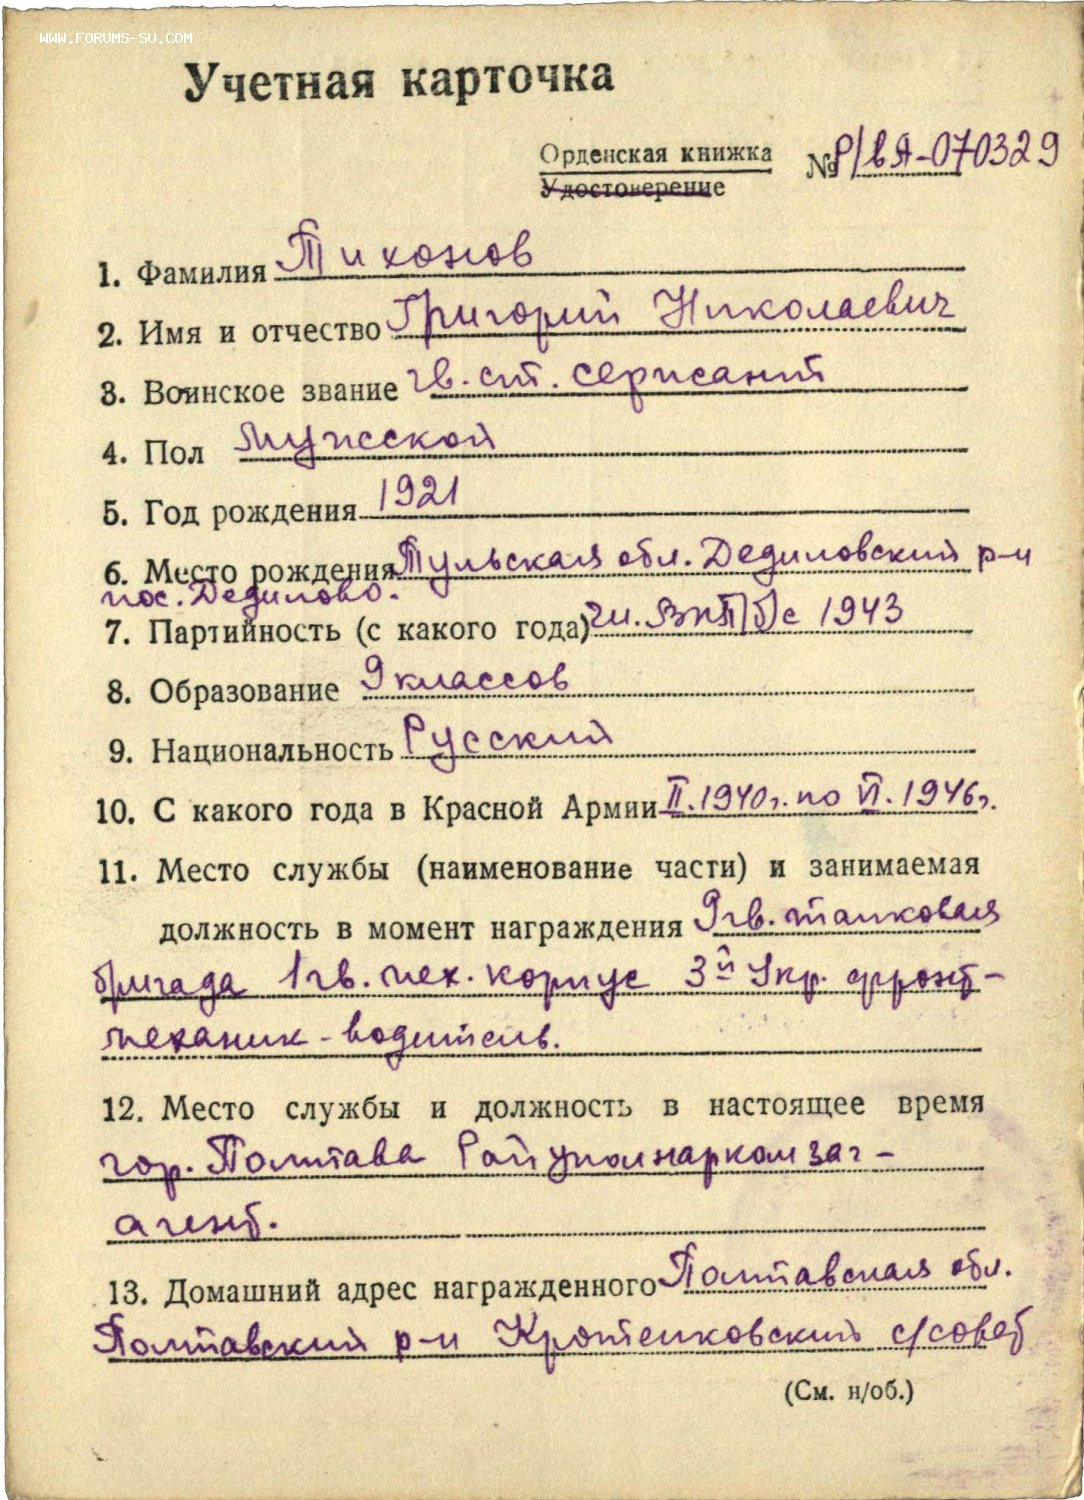 WWW.FORUMS-SU.COM
Учетная карточка
Орденская книжка
Удостоверение
№ Р/вА-070329
1. Фамилия Тихонов
2. Имя и отчество Григорий Николаевич
3. Воинское звание гв. ст. сержант
4. Пол мужской
5. Год рождения 1921
6. Место рождения Тульская обл. Дедиловский р-н
пос. Дедилово.
7. Партийность (с какого года) чл. ВКП(б) с 1943
8. Образование 9 классов
9. Национальность Русский
10. С какого года в Красной Армии II.1940г. по VI.1946г.
11. Место службы (наименование части) и занимаемая
должность в момент награждения 9 гв. танковая
бригада 1 гв. мех. корпус 3й Укр. фронт-
механик-водитель.
12. Место службы и должность в настоящее время
гор. Полтава Райуполнаркомзаг-
агент.
13. Домашний адрес награжденного Полтавская обл.
Полтавский р-н Кротенковский с/совет
(См. н/об.)